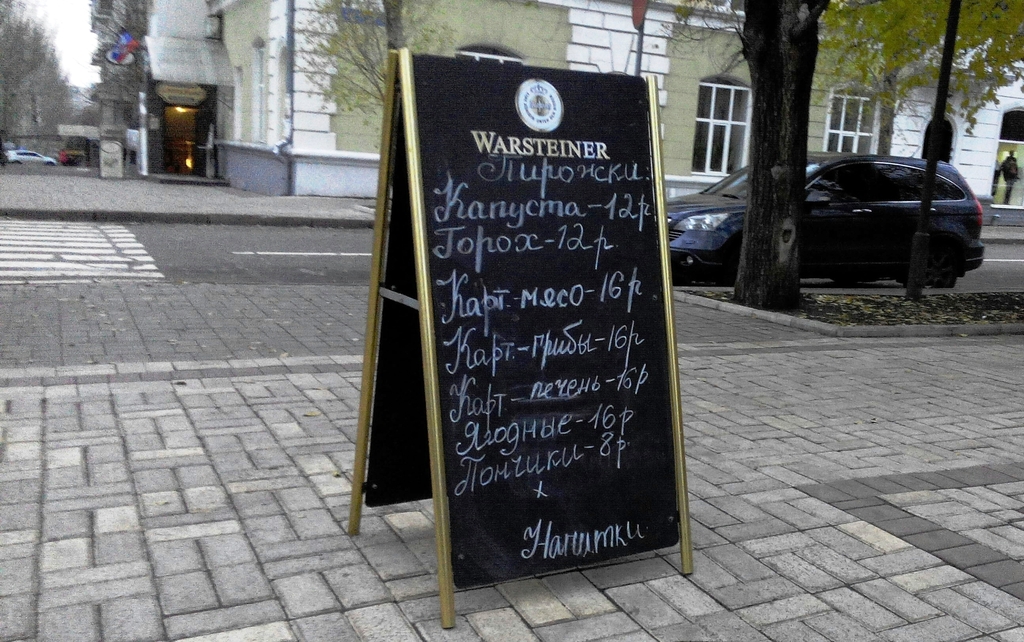 WARSTEINER
Пирожски:
Капуста-12р
Горох-12р.
Карт.-мясо-16р
Карт.-грибы-16р
Карт-печень-16р
Ягодные-16р
Пончики-8р
x
Напитки